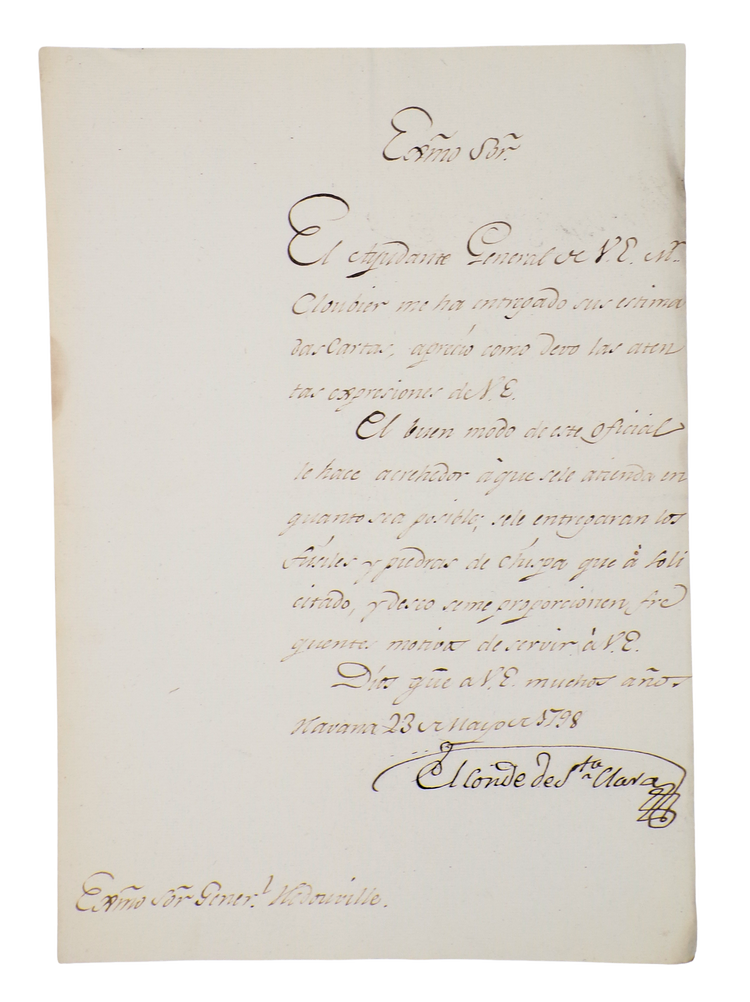 Exm̃o Sõr.
El Ayudante General de V.E. Mr.
Cloubier me ha entregado sus estima
das Cartas, aprecio como devo las aten
tas expresiones de V.E.
El buen modo de este oficial
le hace acrehedor à que sele atienda en
quanto sea posible; sele entregaran los
fusiles y piedras de chispa que à soli
citado, y deseo seme proporcionen fre
quentes motivos de servir à V.E.
Dios gũe a V.E. muchos años.
Havana 23 de Mayo de 1798
El Conde de Sta Clara
Exm̃o Sõr Generl. Hedouville.